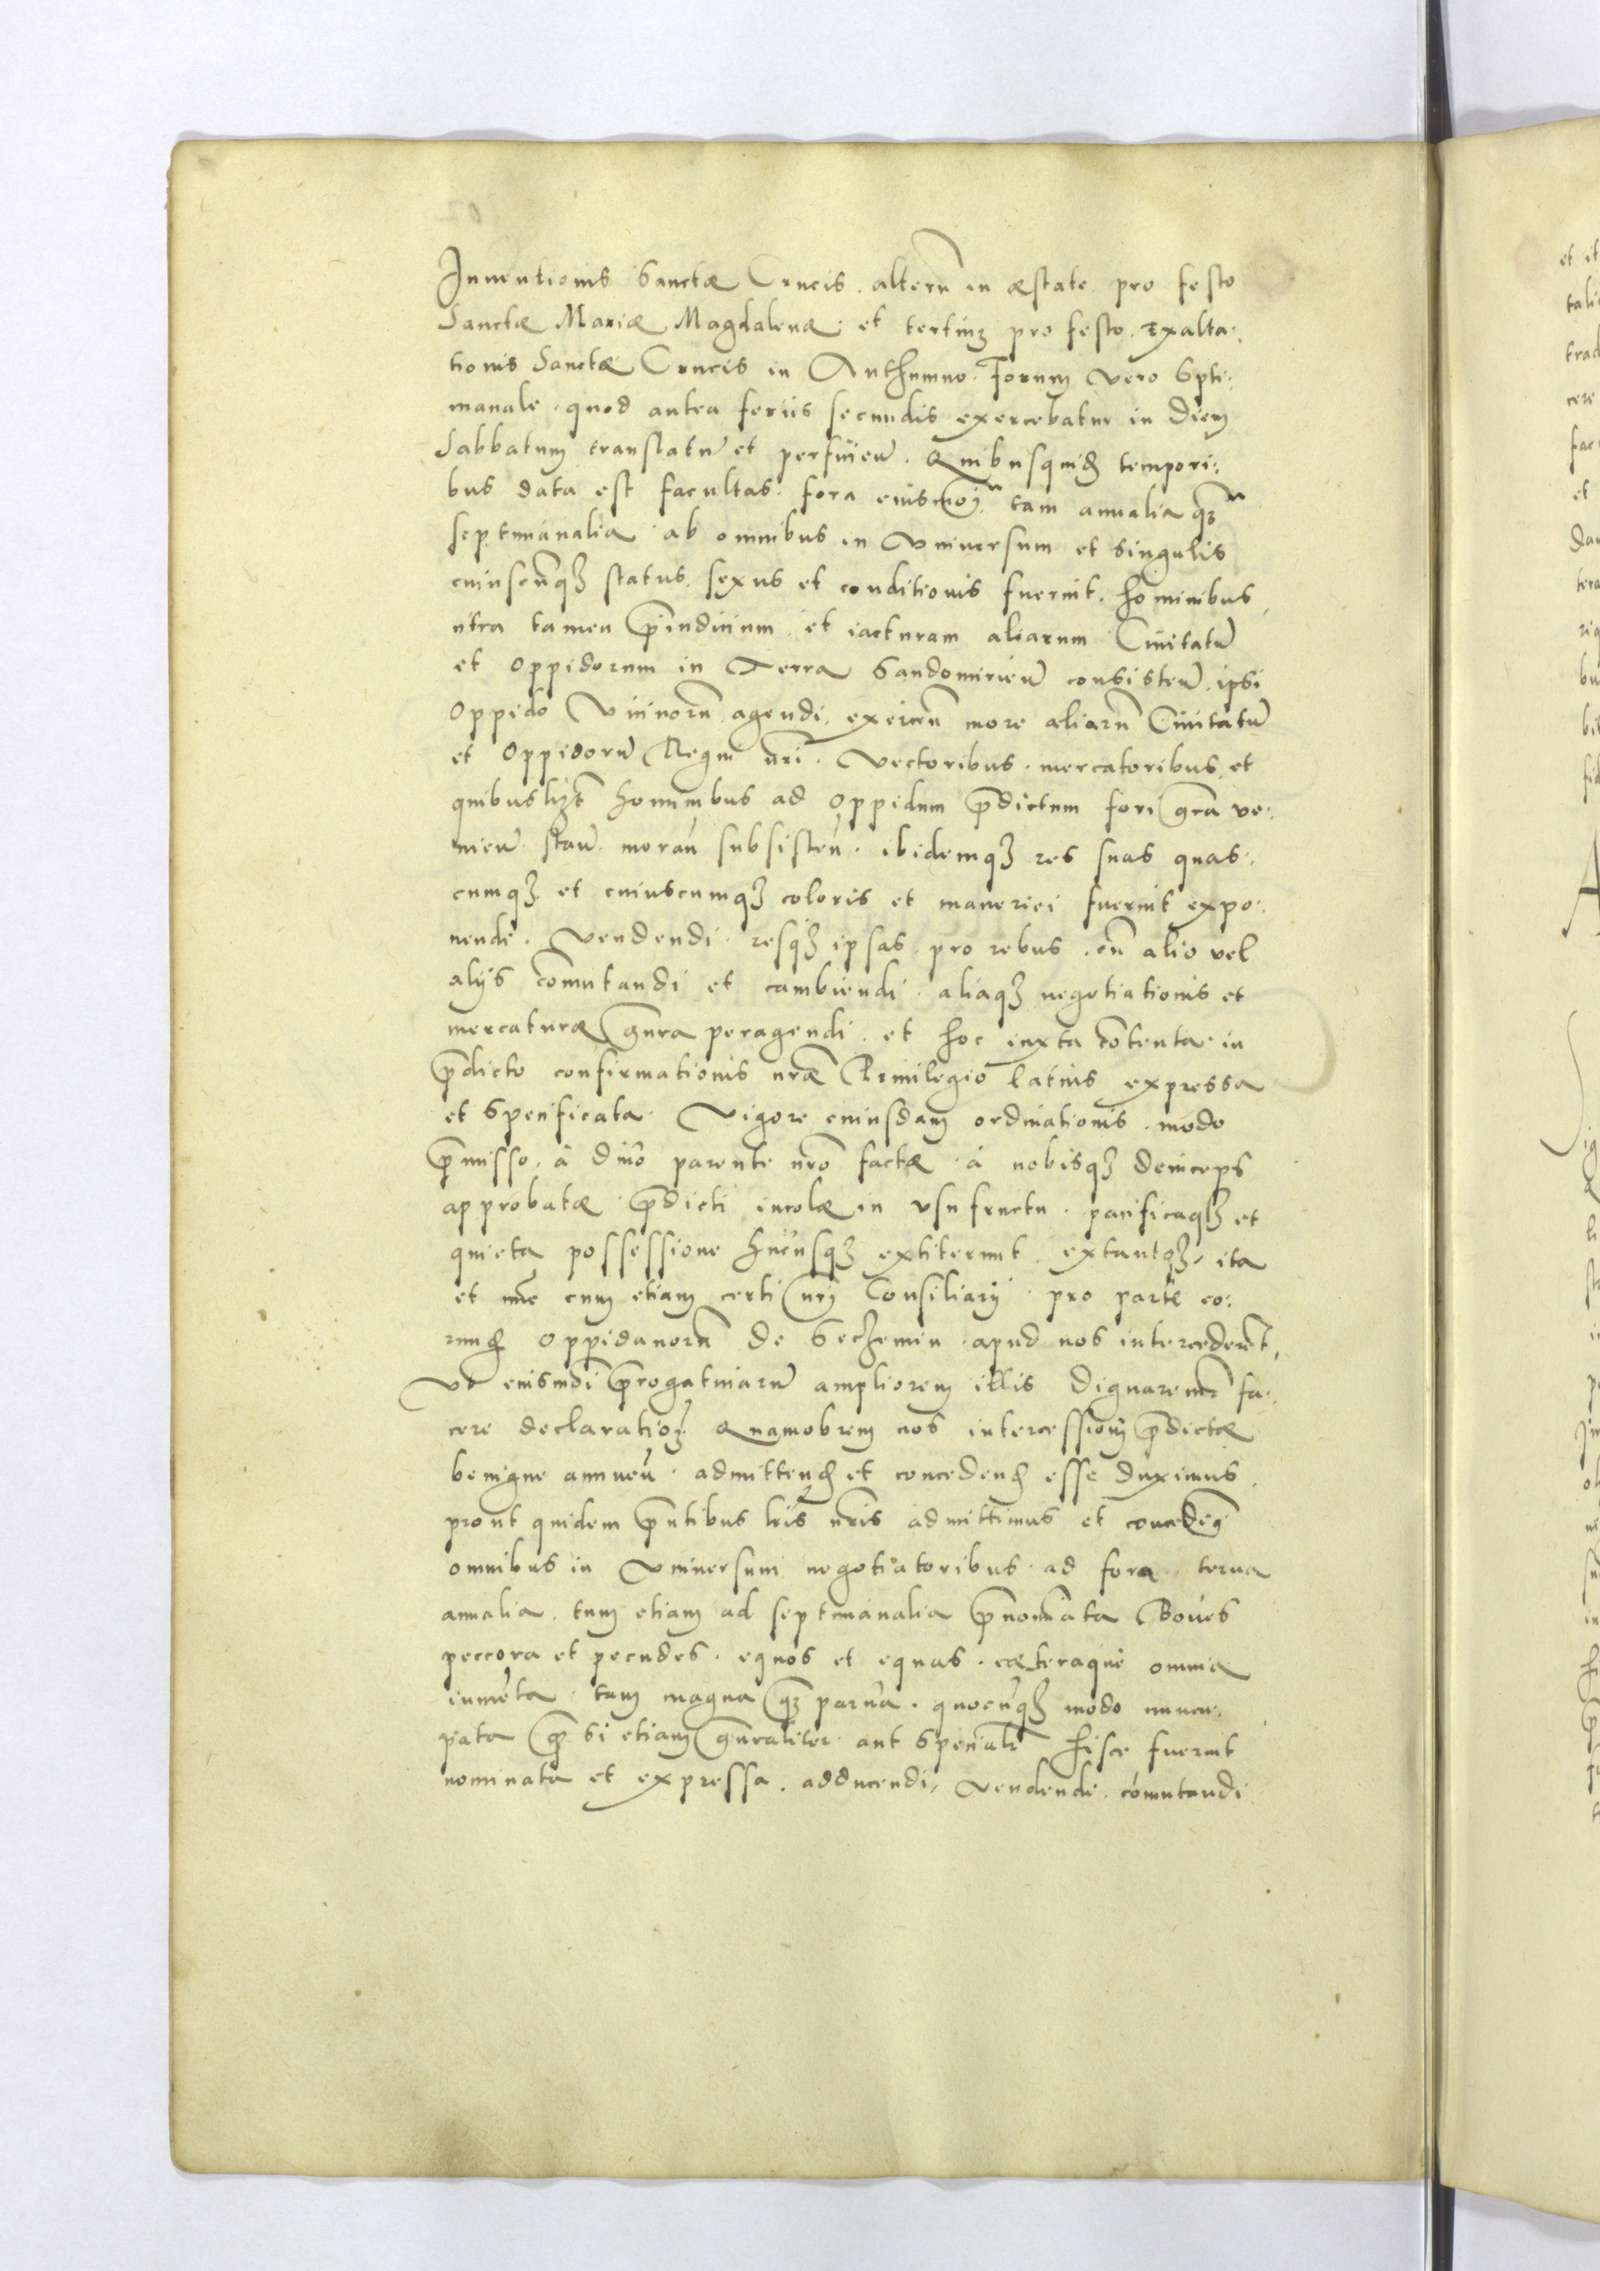 Inuentionis Sanctæ Crucis. alterũ in æstate pro festo
Sanctæ Mariæ Magdalenæ. et tertiuɜ pro festo. Exalta:
tionis Sanctæ Crucis in Authumno. Forum vero Spti:
manale. quod antea feriis secundis exercebatur in Diem
Sabbatum translatũ et perfuieũ. Quibusquidɜ tempori:
bus data est facultas. fora eiusmoj tam annalia qɜ
septimanalia ab omnibus in Vniuersum et singulis
cuiuscũqɜ status. sexus et conditionis fuerint. hominibus,
citra tamen p̃iudicium et iacturam aliarum Ciuitatũ
et oppidorum in Terra Sandomirieñ consisteñ. ipsi
Oppido Vicinorũ agendi. exerceñ more aliarũ Ciuitatũ
et Oppidorũ Regni nr̃i. Vectoribus. mercatoribus. et
quibuslibɜ hominibus ad Oppidum p̃dictum fori gr̃a ve:
nieñ stañ morañ subsisteñ. ibidemqɜ res suas quas:
cumqɜ et cuiuscumqɜ coloris et maneriei fuerint expo:
nendi. Vendendi. resqɜ ipsas. pro rebus. cũ alio vel
alijs com̃utandi et cambiendi. aliaqɜ negotiationis et
mercaturæ gñra peragendi. et hoc iuxta cõtenta. in
p̃dicto confirmationis nr̃æ Priuilegio latius expressa
et specificata. Vigore cuiusdam ordinationis. modo
p̃misso. à Diuo parente nr̃o factæ. à nobisqɜ deinceps
approbatæ. p̃dicti incolæ in vsufructu. pacificaqɜ et
quieta possessione hucusqɜ extiterunt. extantqɜ, ita
et nũc cum etiam certi nr̃j Consiliarij. pro parte eo:
rundɜ Oppidanorũ de Seczemin apud nos intercederẽt,
Vt eiusmõdi p̃rogatiuarũ ampliorem illis Dignaremur fa:
cere declaratioɜ. Quamobrem nos intercessioni p̃dictæ
benigne annueñ. admittendɜ et concedendɜ esse duximus.
prout quidem p̃ntibus lr̃is nr̃is admittimus et concedimꝰ
omnibus in Vniuersum negotiatoribus. ad fora terna
annalia. tum etiam ad septimanalia p̃nom̃ata Boues
peccora et pecudes. equos et equas. cæteraque omnia
iumẽta. tam magna qɜ parua. quocũqɜ modo nuncu:
pata p̃ si etiam gñraliter aut specialr̃ hisce fuerint
nominata et expressa. adducendi, vendendi. com̃utandi